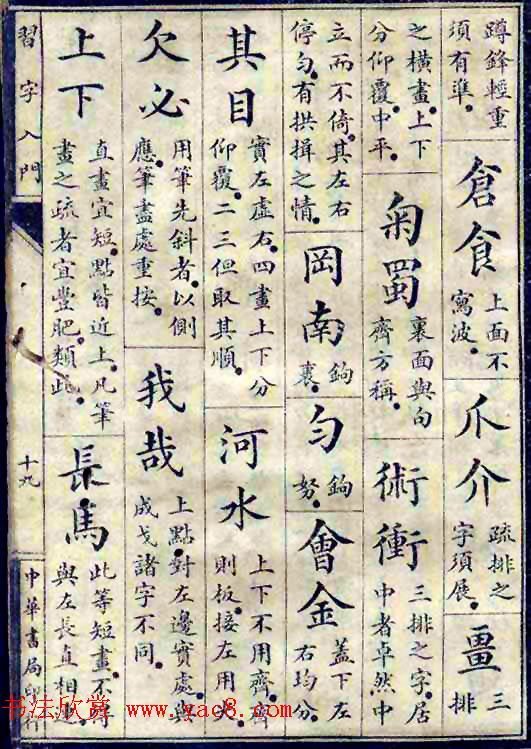 蹲鋒輕重
須有準。
倉食
上面不
寫波。
爪介
疏排之
字須展。
畺
三
排
之橫畫。上下
分仰覆。中平。
菊蜀
裏面與句
齊方稱。
術衝
三排之字。居
中者卓然中
立而不倚。其左右
停勻。有拱揖之情。
岡南
鉤
裏。
勻
鉤
努。
會金
蓋下左
右均分。
其目
實左虛右。四畫上下分
仰覆。二三但取其順。
河水
上下不用齊。齊
則板。接左用尖。
欠必
用筆先斜者。以側
應。筆盡處重按。
我哉
上點。對左邊實處。與
成戈諸字不同。
上下
直畫宜短。點皆近上。凡筆
畫之疏者宜豐肥。類此。
長馬
此等短畫。不得
與左長直相
習字入門
十九
中華書局印
书法欣赏 www.yac8.com